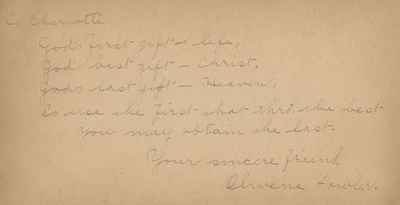 To Charlotte
God's first gift – life,
God best gift – Christ,
God's last gift – Heaven,
So use the first that thro the best
You may obtain the last.
Your sincere friend